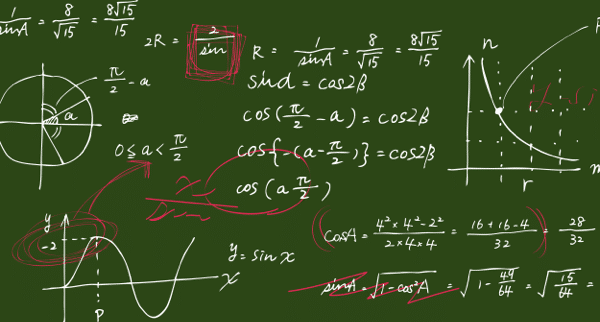 1/sinA = 8/√15 = 8√15/15
2R = 2/sin
R = 1/sinA = 8/√15 = 8√15/15
π/2 - a
a
0 ≤ a < π/2
sind = cos2β
cos(π/2 - a) = cos2β
cos{-(a - π/2)} = cos2β
cos(a π/2)
n
r
y
-2
P
x
y = sin x
cosA = 4² × 4² - 2² / 2 × 4 × 4 = 16 + 16 - 4 / 32 = 28/32
sinA = √1 - cos²A = √1 - 49/64 = √15/64 =